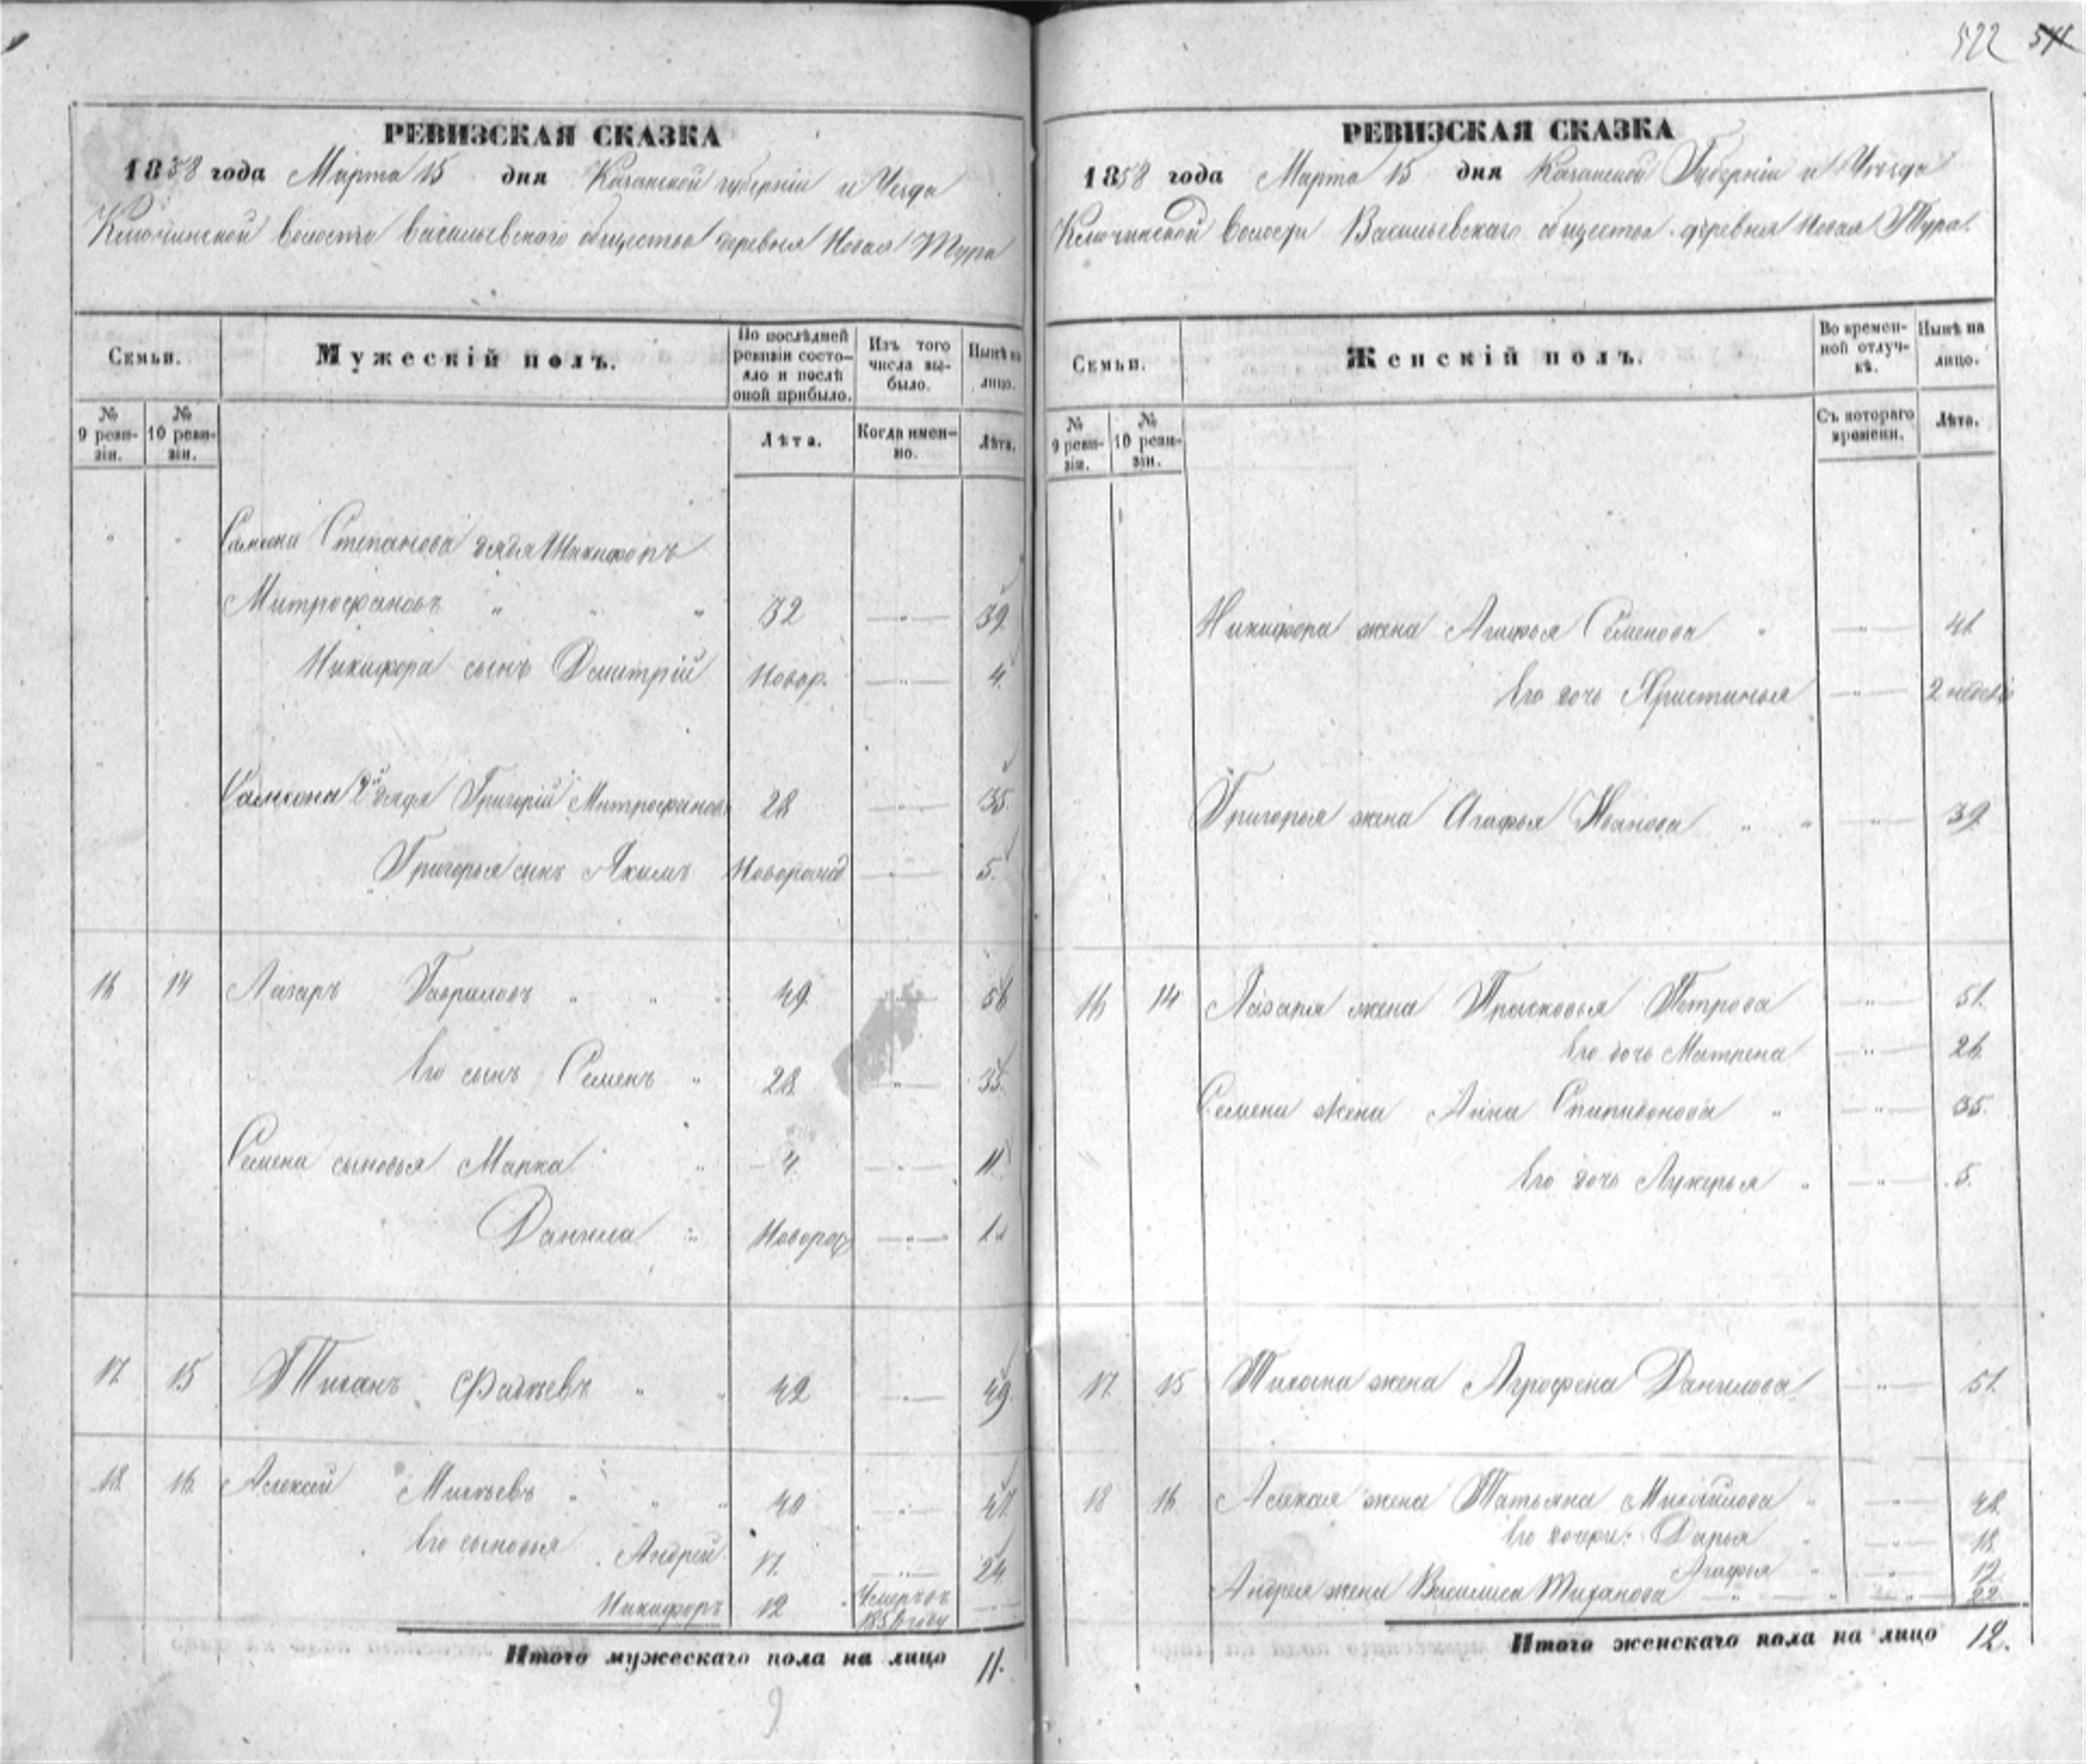 522 511
РЕВИЗСКАЯ СКАЗКА
1858 года Марта 15 дня Казанской губерніи и Уезда
Ключинской волости Васильевского общества деревня Новая Тура
Семьи.
Мужескій полъ.
По послѣдней ревизіи состояло и послѣ оной прибыло.
Изъ того числа выбыло.
Нынѣ на лицо.
№ 9 ревизіи.
№ 10 ревизіи.
Лѣта.
Когда именно.
Лѣта.
Самсона Степанова дядя Никифоръ
Митрофановъ " " " 32 —"— 39.
Никифора сынъ Дмитрій Новор. —"— 4.
Самсона 2й дядя Григорій Митрофановъ 28 —"— 35.
Григорья сынъ Яким Новорожд —"— 5.
16 14 Лазаръ Гавриловъ " " " 49. —"— 56.
Его сынъ Семенъ " 28. —"— 35.
Семена сыновья Марка " 4. —"— 11.
Данила " Новорож —"— 1.
17. 15 Тихан Фадѣевъ " " 42 —"— 49.
18. 16. Алексѣй Михѣевъ " " " 40 —"— 47.
Его сыновья Андрей. 17. —"— 24.
Никифоръ 12 Умершъ 1856 году —
Итого мужескаго пола на лицо 11.
9
РЕВИЗСКАЯ СКАЗКА
1858 года Марта 15 дня Казанской Губерніи и Уѣзда
Ключинской волости Васильевскаго общества деревня Новая Тура.
Семьи.
Женскій полъ.
Во временной отлучкѣ.
Нынѣ на лицо.
№ 9 ревизіи.
№ 10 ревизіи.
Съ котораго времени.
Лѣта.
Никифора жена Агафья Семенова " —"— 41.
Его дочь Христинья —"— 2 недели
Григорья жена Агафья Иванова " " —"— 39.
16 14 Лазаря жена Прасковья Петрова —"— 51.
Его дочь Матрена —"— 26.
Семена жена Анна Спиридонова " —"— 35.
Его дочь Лукерья " —"— 5.
17. 15 Тихана жена Агрофена Данилова —"— 51.
18 16. Алексея жена Татьяна Михайлова " —"— 48.
Его дочери: Дарья " —"— 18.
Агафья " —"— 12
Андрея жена Василиса —"— 22.
Итого женскаго пола на лицо 12.